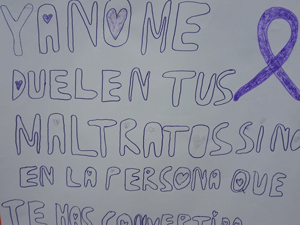 YA NO ME
DUELEN TUS
MALTRATOS SINO
EN LA PERSONA QUE
TE HAS CONVERTIDO